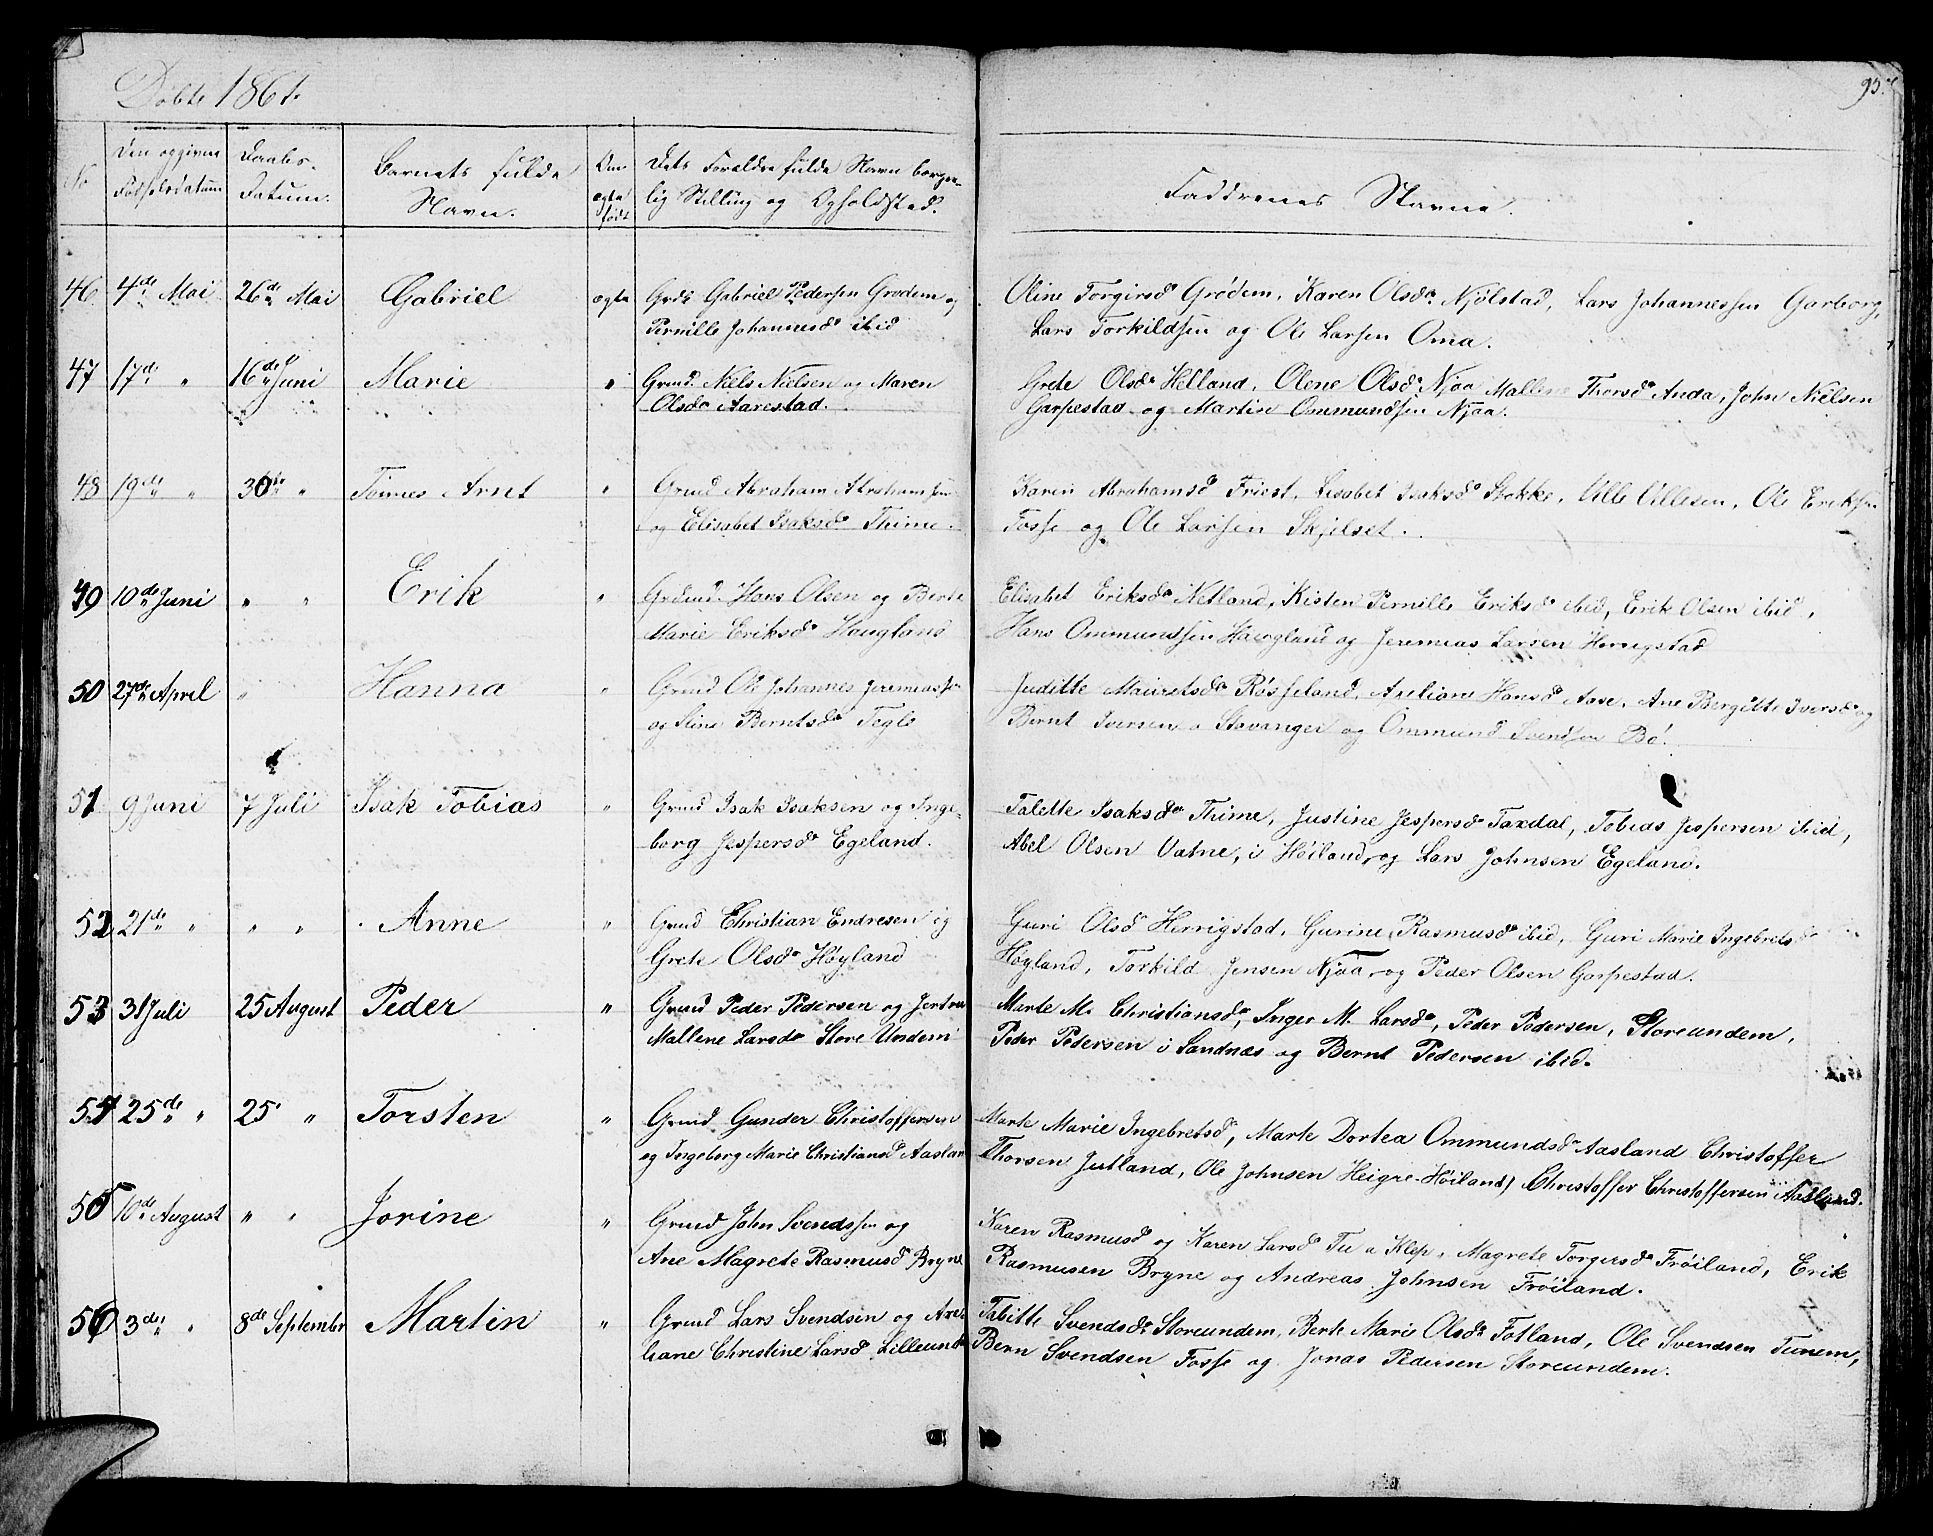 Døbte 1861.
95.
No
Den opgivne Fødselsdatum
Daabs-Datum.
Barnets fulde Navn.
Om ægte født
Dets Forældre fulde Navn borger-
lig Stilling og Opholdsted.
Faddrenes Navne.
46 4de Mai 26de Mai Gabriel ægte Grdb Gabriel Pedersen Grødem og
Pernille Johannesda ibid
Oline Torgirsd Grødem, Karen Olsda Njølstad, Lars Johannessen Garborg,
Lars Torkildsen og Ole Larsen Oma.
47 17de " 16de Juni Marie " Grmd. Niels Nielsen og Maren
Olsda Aarestad.
Grete Olsda Helland, Olene Olsda Njaa Mallene Thorsda Anda, John Nielsen
Garpestad og Martin Ommundsen Njaa.
48 19de " 30te " Tønnes Arnt " Grmd Abraham Abrahamsen
og Elisabet Isaksda Thime.
Karen Abrahamsd Friest, Lisabet Isaksda Stokke, Ville Villesen, Ole Eriksen
Fosse og Ole Larsen Skjelset.
49 10de Juni " " Erik " Grdmd Hans Olsen og Berte
Marie Eriksda Haugland
Elisabet Eriksda Netland, Kisten Pernille Eriksda ibid, Erik Olsen ibid,
Hans Ommundsen Haugland og Jeremias Larsen Herrigstad
50 27de April " Hanna " Grmd Ole Johannes Jeremiassen
og Stine Berntsda Tegle
Juditte Mauretsda Røsseland, Axeliane Hansda Aase, Ane Bergitte Iversda og
Bernt Iversen a Stavanger og Ommund Svendsen Bø.
51 9 Juni 7 Juli Isak Tobias " Grmd Isak Isaksen og Inge-
borg Jespersda Egeland.
Talette Isaksda Thime, Justine Jespersda Taxdal, Tobias Jespersen ibid,
Abel Olsen Vatne, i Høiland, og Lars Johnsen Egeland.
52 21de " " " Anne " Grmd Christian Endresen og
Grete Olsda Høyland
Guri Olsda Herrigstad, Gurine Rasmusda ibid, Guri Marie Ingebretsda
Høyland, Torkild Jensen Njaa, og Peder Olsen Garpestad.
53 31 Juli 25 August Peder " Grmd Peder Pedersen og Jertru
Mallene Larsda Store Undem
Marte M. Christiansda, Inger M. Larsda, Peder Pedersen, Storeundem,
Peder Pedersen i Sandnæs og Bernt Pedersen ibid.
54 25de " 25 " Torsten " Grmd Gunder Christoffersen
og Ingeborg Marie Christiansd Aaslan
Marte Marie Ingebretsda, Marte Dortea Ommundsda Aasland Christoffer
Thorsen Jutland, Ole Johnsen Heigre-Høiland, Christoffer Christoffersen Aasland.
55 10de August " " Jorine " Grmd John Svendssen og
Ane Magrete Rasmusd Bryne
Karen Rasmusd og Karen Larsd Tu a Klep, Magrete Torgersda Frøiland, Erik
Rasmusen Bryne og Andreas Johnsen Frøiland.
56 3de " 8de Septembr Martin " Grmd Lars Svendsen og Axe-
liane Christine Larsd Lilleund
Tabitte Svendsda Storeundem, Berte Marie Olsda Fotland, Ole Svendsen Tunem,
Bern Svendsen Fosse og Jonas Pedersen Storeundem.